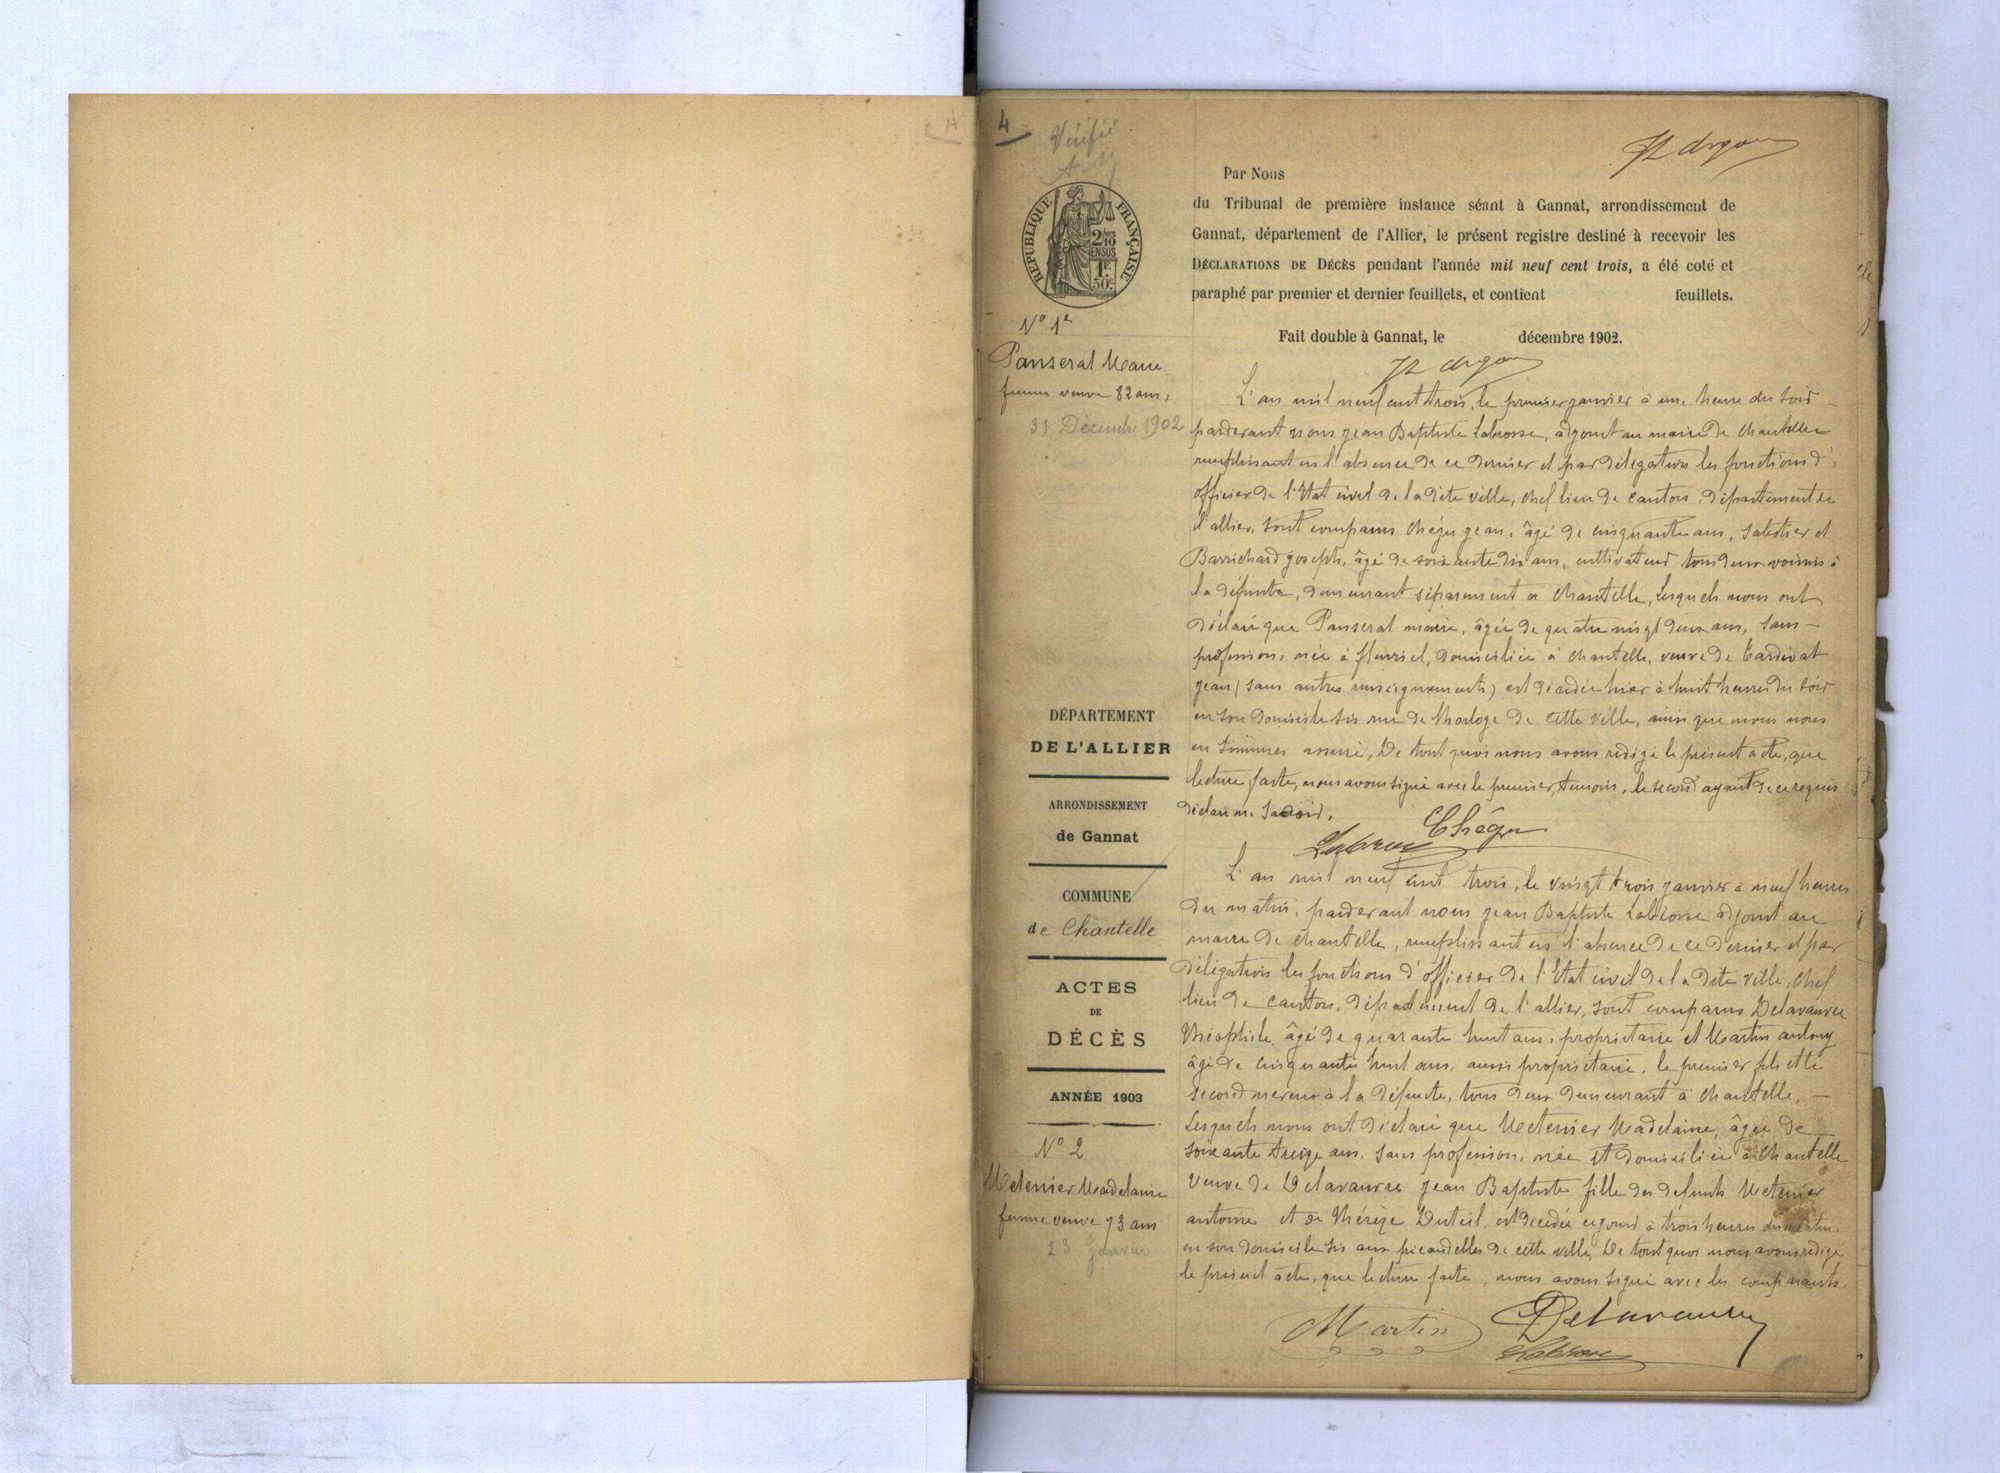 4
Vérifié
RÉPUBLIQUE FRANÇAISE
2/10 EN SUS
1F. 50c.
Par Nous
du Tribunal de première instance séant à Gannat, arrondissement de
Gannat, département de l'Allier, le présent registre destiné à recevoir les
DÉCLARATIONS DE DÉCÈS pendant l'année mil neuf cent trois, a été coté et
paraphé par premier et dernier feuillets, et contient feuillets.
Fait double à Gannat, le décembre 1902.
N° 1er
Panserat Marie
femme veuve 82 ans,
31 Décembre 1902
L'an mil neuf cent trois, le premier janvier à une heure du soir
pardevant nous jean Baptiste Labrosse, adjoint au maire de Chantelle
remplissant en l'absence de ce dernier et par délégation les fonctions d'
officier de l'Etat civil de la dite ville, chef lieu de canton, département de
l'allier, sont comparus Chégu jean, âgé de cinquante ans, sabotier et
Barrichard joseph, âgé de soixante dix ans, cultivateur tous deux voisins à
la défunte, demeurant séparément à Chantelle, lesquels nous ont
déclaré que Panserat marie, âgée de quatre vingt deux ans, sans
profession, née à fleuriel, domiciliée à chantelle, veuve de Tardivat
jean (sans autres renseignements) est décédée hier à huit heures du soir
en son domicile sis rue de l'horloge de cette ville, ainsi que nous nous
en sommes assuré, De tout quoi nous avons rédigé le présent acte, que
lecture faite, nous avons signé avec le premier témoin, le second ayant de ce requis
déclaré ne savoir.
Chégu
Labrosse
DÉPARTEMENT
DE L'ALLIER
ARRONDISSEMENT
de Gannat
COMMUNE
de Chantelle
ACTES
DE
DÉCÈS
ANNÉE 1903
N° 2
Metenier Madelaine
femme veuve 73 ans
23 Janvier
L'an mil neuf cent trois, le vingt trois janvier à neuf heures
du matin, pardevant nous jean Baptiste Labrosse adjoint au
maire de chantelle, remplissant en l'absence de ce dernier et par
délégation les fonctions d'officier de l'Etat civil de la dite ville, chef
lieu de canton, département de l'allier, sont comparus Delavauvre
Théophile, âgé de quarante huit ans, propriétaire et Martin antony
âgé de cinquante huit ans, aussi propriétaire, le premier fils et le
second neveu à la défunte, tous deux demeurant à chantelle,
Lesquels nous ont déclaré que Metenier Madelaine, âgée de
soixante treize ans, sans profession, née et domiciliée à Chantelle
veuve de Delavauvre jean Baptiste fille des defunts Metenier
antoine et de Thérèze Duteil, est décédée cejourd à trois heures du matin
en son domicile sis aux picandelles de cette ville, De tout quoi nous avons rédigé
le présent acte, que lecture faite, nous avons signé avec les comparants.
Martin Delavauvre
Labrosse